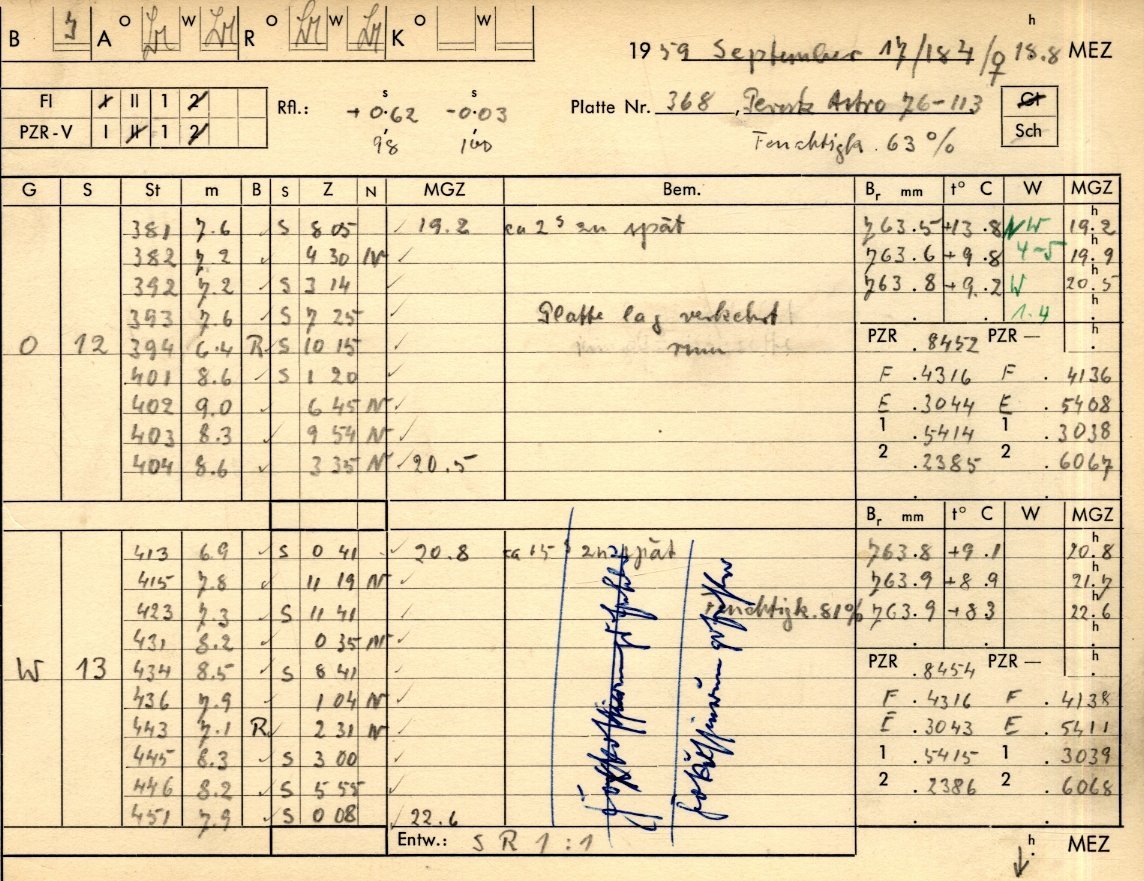 h
B A O W R O W K O W
1959 September 17/18 4/♀ 18.8 MEZ
FI I II 1 2 Rfl.: s +0.62 s -0.03 Platte Nr. 368, Perutz Astro 76-113 Gl
PZR-V I II 1 2 98 100 Feuchtigk. 63 % Sch
G S St m B S Z N MGZ Bem. Br mm t° C W MGZ
381 7.6 ✓ S 8 05 ✓ 19.2 ca 2 s zu spät 763.5 +13.8 NW 19.2 h
382 7.2 ✓ 4 30 N ✓ 763.6 +9.8 4-5 19.9 h
392 7.2 ✓ S 3 14 ✓ 763.8 +9.2 W 20.5 h
393 7.6 ✓ S 7 25 ✓ Platte lag verkehrt 1.4
O 12 394 6.4 R ✓ S 10 15 ✓ PZR .8452 PZR — h
401 8.6 ✓ S 1 20 ✓ F .4316 F .4136
402 9.0 ✓ 6 45 N ✓ E .3044 E .5408
403 8.3 ✓ 9 54 N ✓ 1 .5414 1 .3038
404 8.6 ✓ 3 35 N ✓ 20.5 2 .2385 2 .6067
Br mm t° C W MGZ
413 6.9 ✓ S 0 41 ✓ 20.8 ca 15 s zu spät 763.8 +9.1 20.8 h
415 7.8 ✓ 11 19 N ✓ 763.9 +8.9 21.7 h
423 7.3 ✓ S 11 41 ✓ Feuchtigk. 81% 763.9 +8.3 22.6 h
431 8.2 ✓ 0 35 N ✓ h
W 13 434 8.5 ✓ S 8 41 ✓ PZR .8454 PZR — h
436 7.9 ✓ 1 04 N ✓ F .4316 F .4138
443 7.1 R ✓ 2 31 N ✓ E .3043 E .5411
445 8.3 ✓ S 3 00 ✓ 1 .5415 1 .3039
446 8.2 ✓ S 5 55 ✓ 2 .2386 2 .6068
451 7.9 ✓ S 0 08 ✓ 22.6
Entw.: S R 1:1 h MEZ